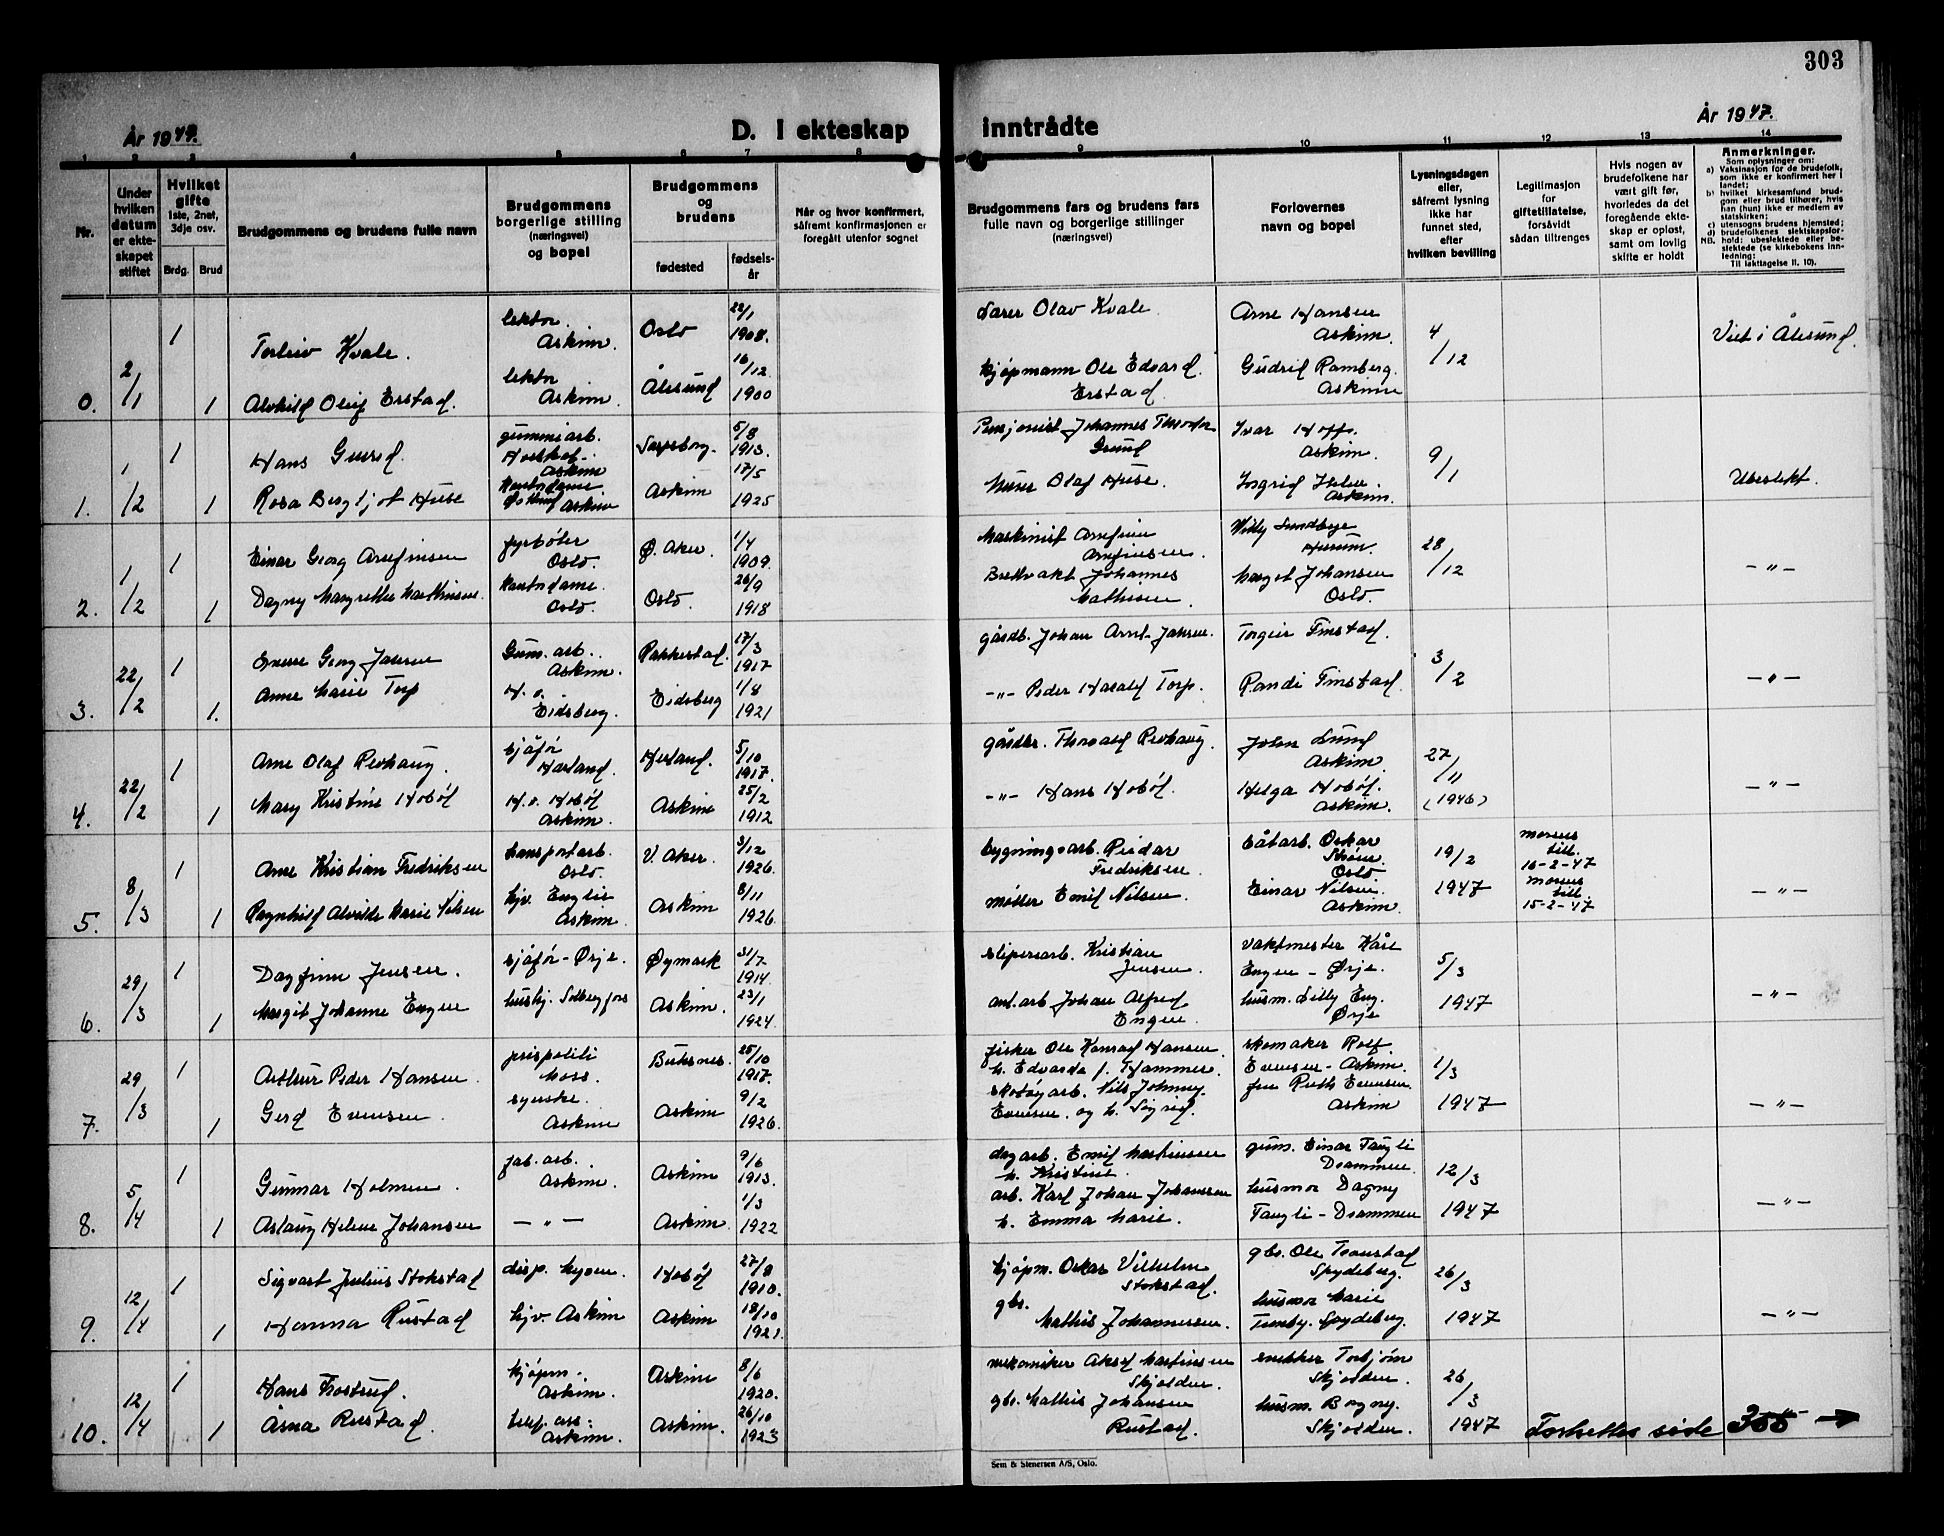 303
År 1947.
D. I ekteskap inntrådte
År 1947.
1 2 3 4 5 6 7 8 9 10 11 12 13 14
Nr.
Under hvilken datum er ekteskapet stiftet
Hvilket gifte 1ste, 2net, 3dje osv.
Brdg. Brud
Brudgommens og brudens fulle navn
Brudgommens borgerlige stilling (næringsvei) og bopel
Brudgommens og brudens
fødested
fødselsår
Når og hvor konfirmert, såfremt konfirmasjonen er foregått utenfor sognet
Brudgommens fars og brudens fars fulle navn og borgerlige stillinger (næringsvei)
Forlovernes navn og bopel
Lysningsdagen eller, såfremt lysning ikke har funnet sted, efter hvilken bevilling
Legitimasjon for giftetillatelse, forsåvidt sådan tiltrenges
Hvis nogen av brudefolkene har vært gift før, hvorledes da det foregående ekteskap er opløst, samt om lovlig skifte er holdt
Anmerkninger.
Som oplysninger om:
a) Vaksinasjon for de brudefolk, som ikke er konfirmert her i landet;
b) hvilket kirkesamfund brudgom eller brud tilhører, hvis han (hun) ikke er medlem av statskirken;
c) utensogns brudens hjemsted;
d) brudefolkenes slektskapsforhold: ubeslektede eller beslektede (se kirkebokens innledning;
NB. Til iakttagelse II. 10).
0. 2/1 1 Torleiv Kvale. lektor. Askim. Oslo 22/1 1908. Olav Kvale Arne Hansen Askim. 4/12 Viet i Ålesund.
1 Alvhild Oleif Erstad. lektor Askim. Ålesund 16/12 1900 kjøpmann Ole Edvard Erstad. Gudrid Ramberg. Askim
1. 1/2 1 Hans Grund. gummiarb. Askim Sarpsborg. 5/8 1913. Pensjonist Johannes Theodor Grund Ivar Hoff. Askim. 9/1 Ubeslekt.
1 Rosa Bergljot Huse kontordame Askim Askim 17/5 1925 murer Olaf Huse. Ingrid Askim.
2. 1/2 1 Einar Georg Arnfinsen fyrbøter Oslo. Ø. Aker. 1/4 1909. Maskinist Arnfinn Arnfinsen. Willy Sundbye Hurum. 28/12 -"-
1 Dagny Margrethe Mathisen. Kontordame. Oslo. Oslo. 26/9 1918 Brettvakt Johannes Mathisen. Margot Johansen Oslo.
3. 22/2 1 Sverre Georg Jahren Gum. arb. Askim. Rakkestad. 17/3 1917 gårdb. Johan Arnt Jahren. Torgeir Finstad. 3/2 -"-
1. Anne Marie Torp H. d. Eidsberg. Eidsberg 1/8 1921 -"- Peder Harald Torp. Randi Finstad.
4. 22/2 1 Arne Olaf Revhaug. sjåfør Hærland. Herland. 5/10 1917. gårdbr. Thorvald Revhaug. John Lund Askim. 27/11 (1946) -"-
1 Mary Kristine Hobøl H. d. Hobøl Askim. Askim 25/2 1912 -"- Hans Hobøl. Helga Hobøl. Askim.
5. 8/3 1 Arne Kristian Fredriksen transportarb. Oslo. V. Aker. 3/12 1926. bygningsarb. Reidar Fredriksen. båtarb. Oskar Oslo 19/2 1947 morens till. 16-2-47 -"-
1 Ragnhild Alvilde Marie Nilsen hjv. Englie Askim. Askim 8/11 1926. møller Emil Nilsen. Einar Nilsen. Askim. morens till. 15-2-47.
6. 29/3 1 Dagfinn Jensen. sjåfør - Ørje. Øymark 31/7 1914. sliperiarb. Kristian Jensen. vaktmester Kåre Engen - Ørje. 5/3 1947 -"-
1 Margit Johanne Engen hushj. Solbergfoss Askim. 23/1 1924. anl. arb Johan Alfred Engen. husm. Lilly Eng. Ørje
7. 29/3 1 Arthur Peder Hansen. prispoliti Moss. Buksnes. 25/10 1917. fisker Ole Konrad Hansen. h. Edvarda f. Hammer. skomaker Rolf Evensen - Askim. 1/3 1947 -"-
1 Gerd Evensen. syerske. Askim Askim 9/2 1926. skotøyarb. Nils Johnny Evensen. og h. Sigrid. fru Ruth Evensen. Askim
8. 5/4 1 Gunnar Holmen. fab. arb. Askim. Askim 9/6 1913. dagarb. Emil Martinsen h. Kristine. gum. Einar Taugli Drammen. 12/3 1947 -"-
1 Aslaug Helene Johansen -"- Askim. 1/3 1922 arb. Karl Johan Johanssen h. Emma Marie. husmor Dagny Taugli - Drammen
9. 12/4 1 Sigvart Julius Stokstad disp. Mysen. Hobøl 27/8 1910. kjøpm. Oskar Vilhelm Stokstad. gbr. Ole Tronstad Spydeberg. 26/3 1947 -"-
1 Hanna Rustad hjv. Askim Askim 18/10 1921. gbr. Mathis Johannessen. husmor Marie Spydeberg.
10. 12/4 1 Hans Frostrud. kjøpm. Askim. Askim 8/6 1920. mekaniker Aksel Martinsen Skjolden. snekker Torbjørn Skjolden. 26/3 1947
1 Arna Rustad. telef. ass. Askim. Askim. 26/10 1923 gbr. Mathis Johansen Rustad. husm. Borgny. Skjolden.
Forsettes side 355 →
Sem & Stenersen A/S, Oslo.